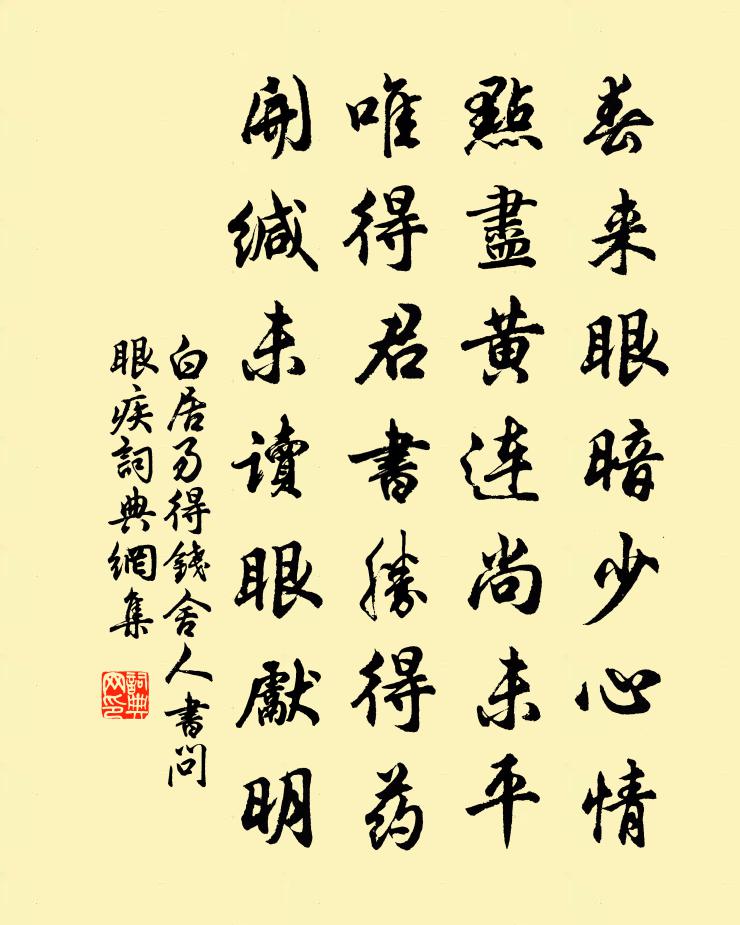 春来眼暗少心情
點盡黄連尚未平
唯得君書勝得药
開緘未讀眼獻明
白居易得錢舍人書問
眼疾詞典網集
詞典
网印